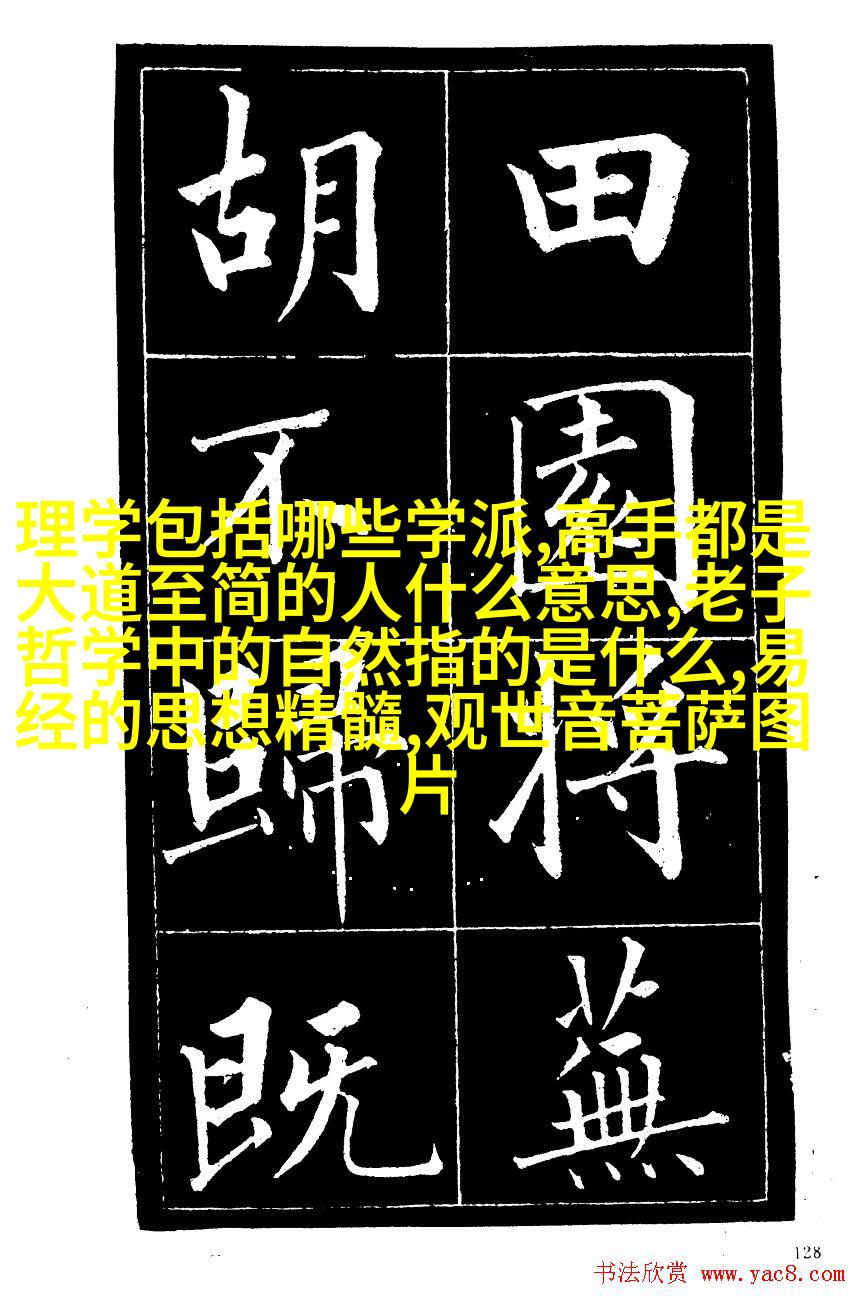 田園将蕪
胡不歸既
理学包括哪些学派,高手都是
大道至简的人什么意思,老子
哲学中的自然指的是什么,易
经的思想精髓,观世音菩萨图
片
128
书法欣赏 www.yac8.com